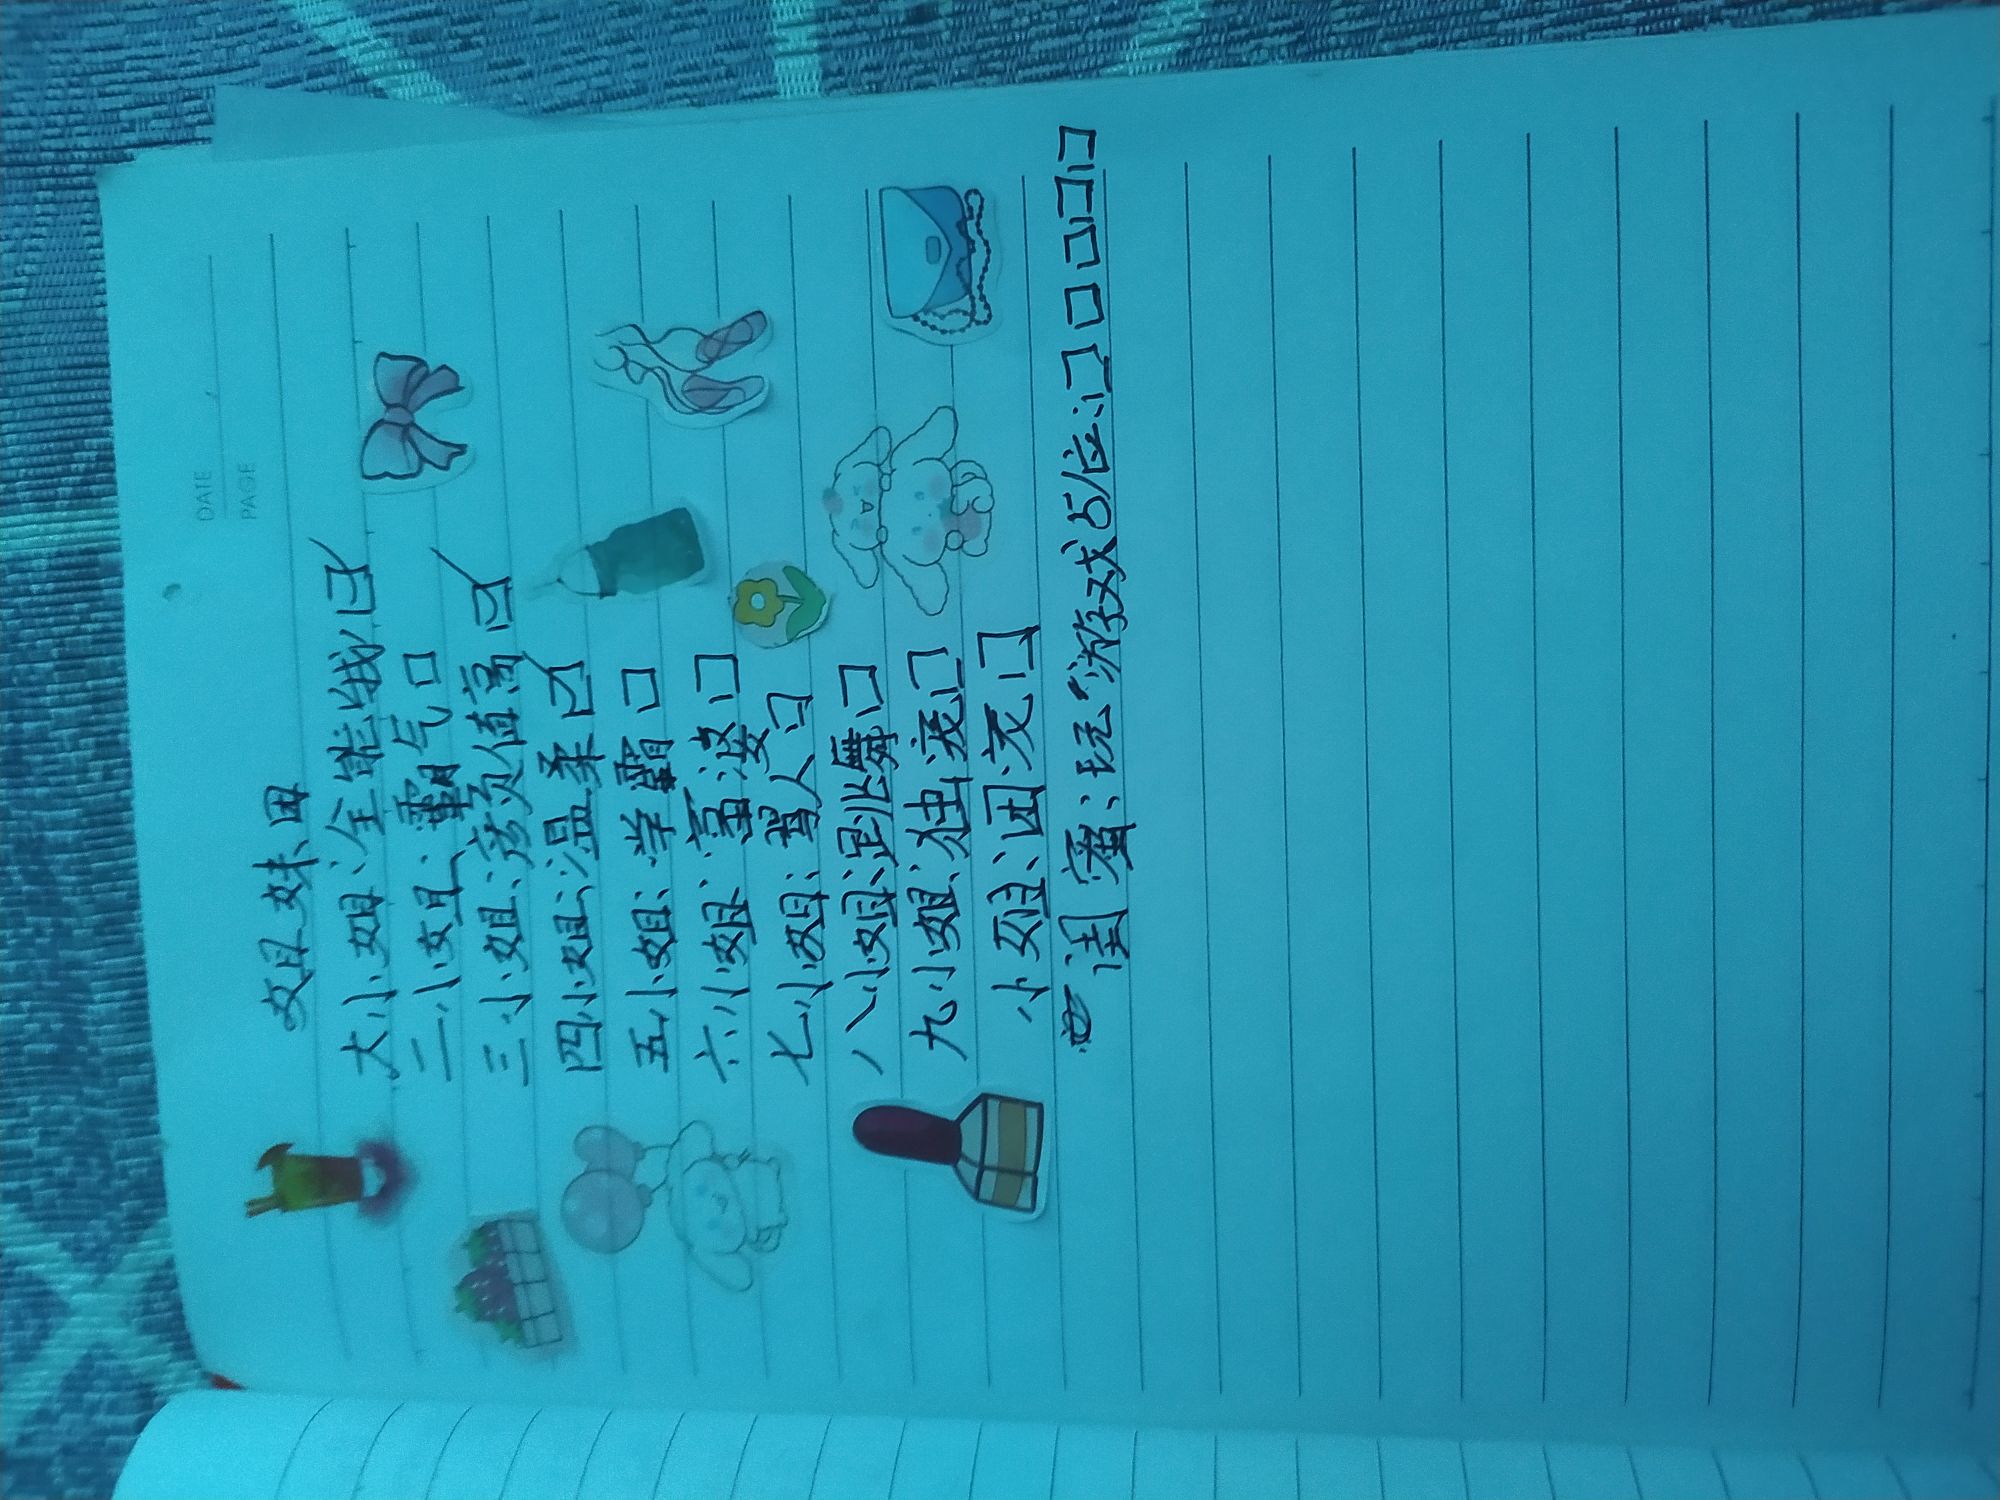 DATE
PAGE
姐妹团
大小姐:全能钱☑
二小姐:霸气口
三小姐:颜值高☑
四小姐:温柔☑
五小姐:学霸口
六小姐:富婆口
七小姐:口
八小姐:跳舞口
九小姐:独宠口
小姐:团宠口
闺蜜:玩游戏5位:口口口口口